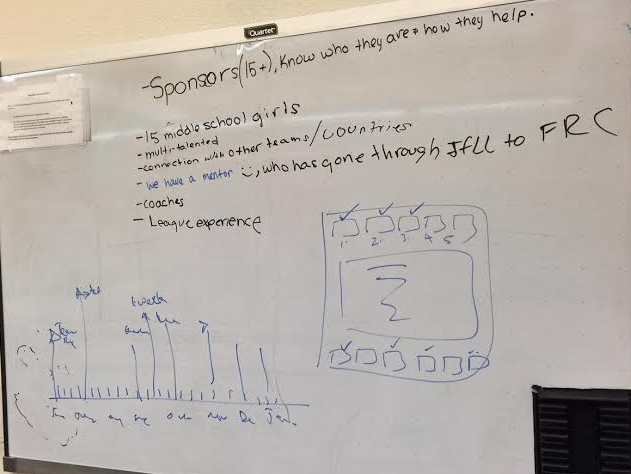 Quartet
-Sponsors(15+), Know who they are + how they help.
-15 middle school girls
-multi-talented
-connection with other teams/countries
- we have a mentor :), who has gone through JfLL to FRC
-coaches
- League experience
1 2 3 4 5
1 week
Team
Nov De Jan